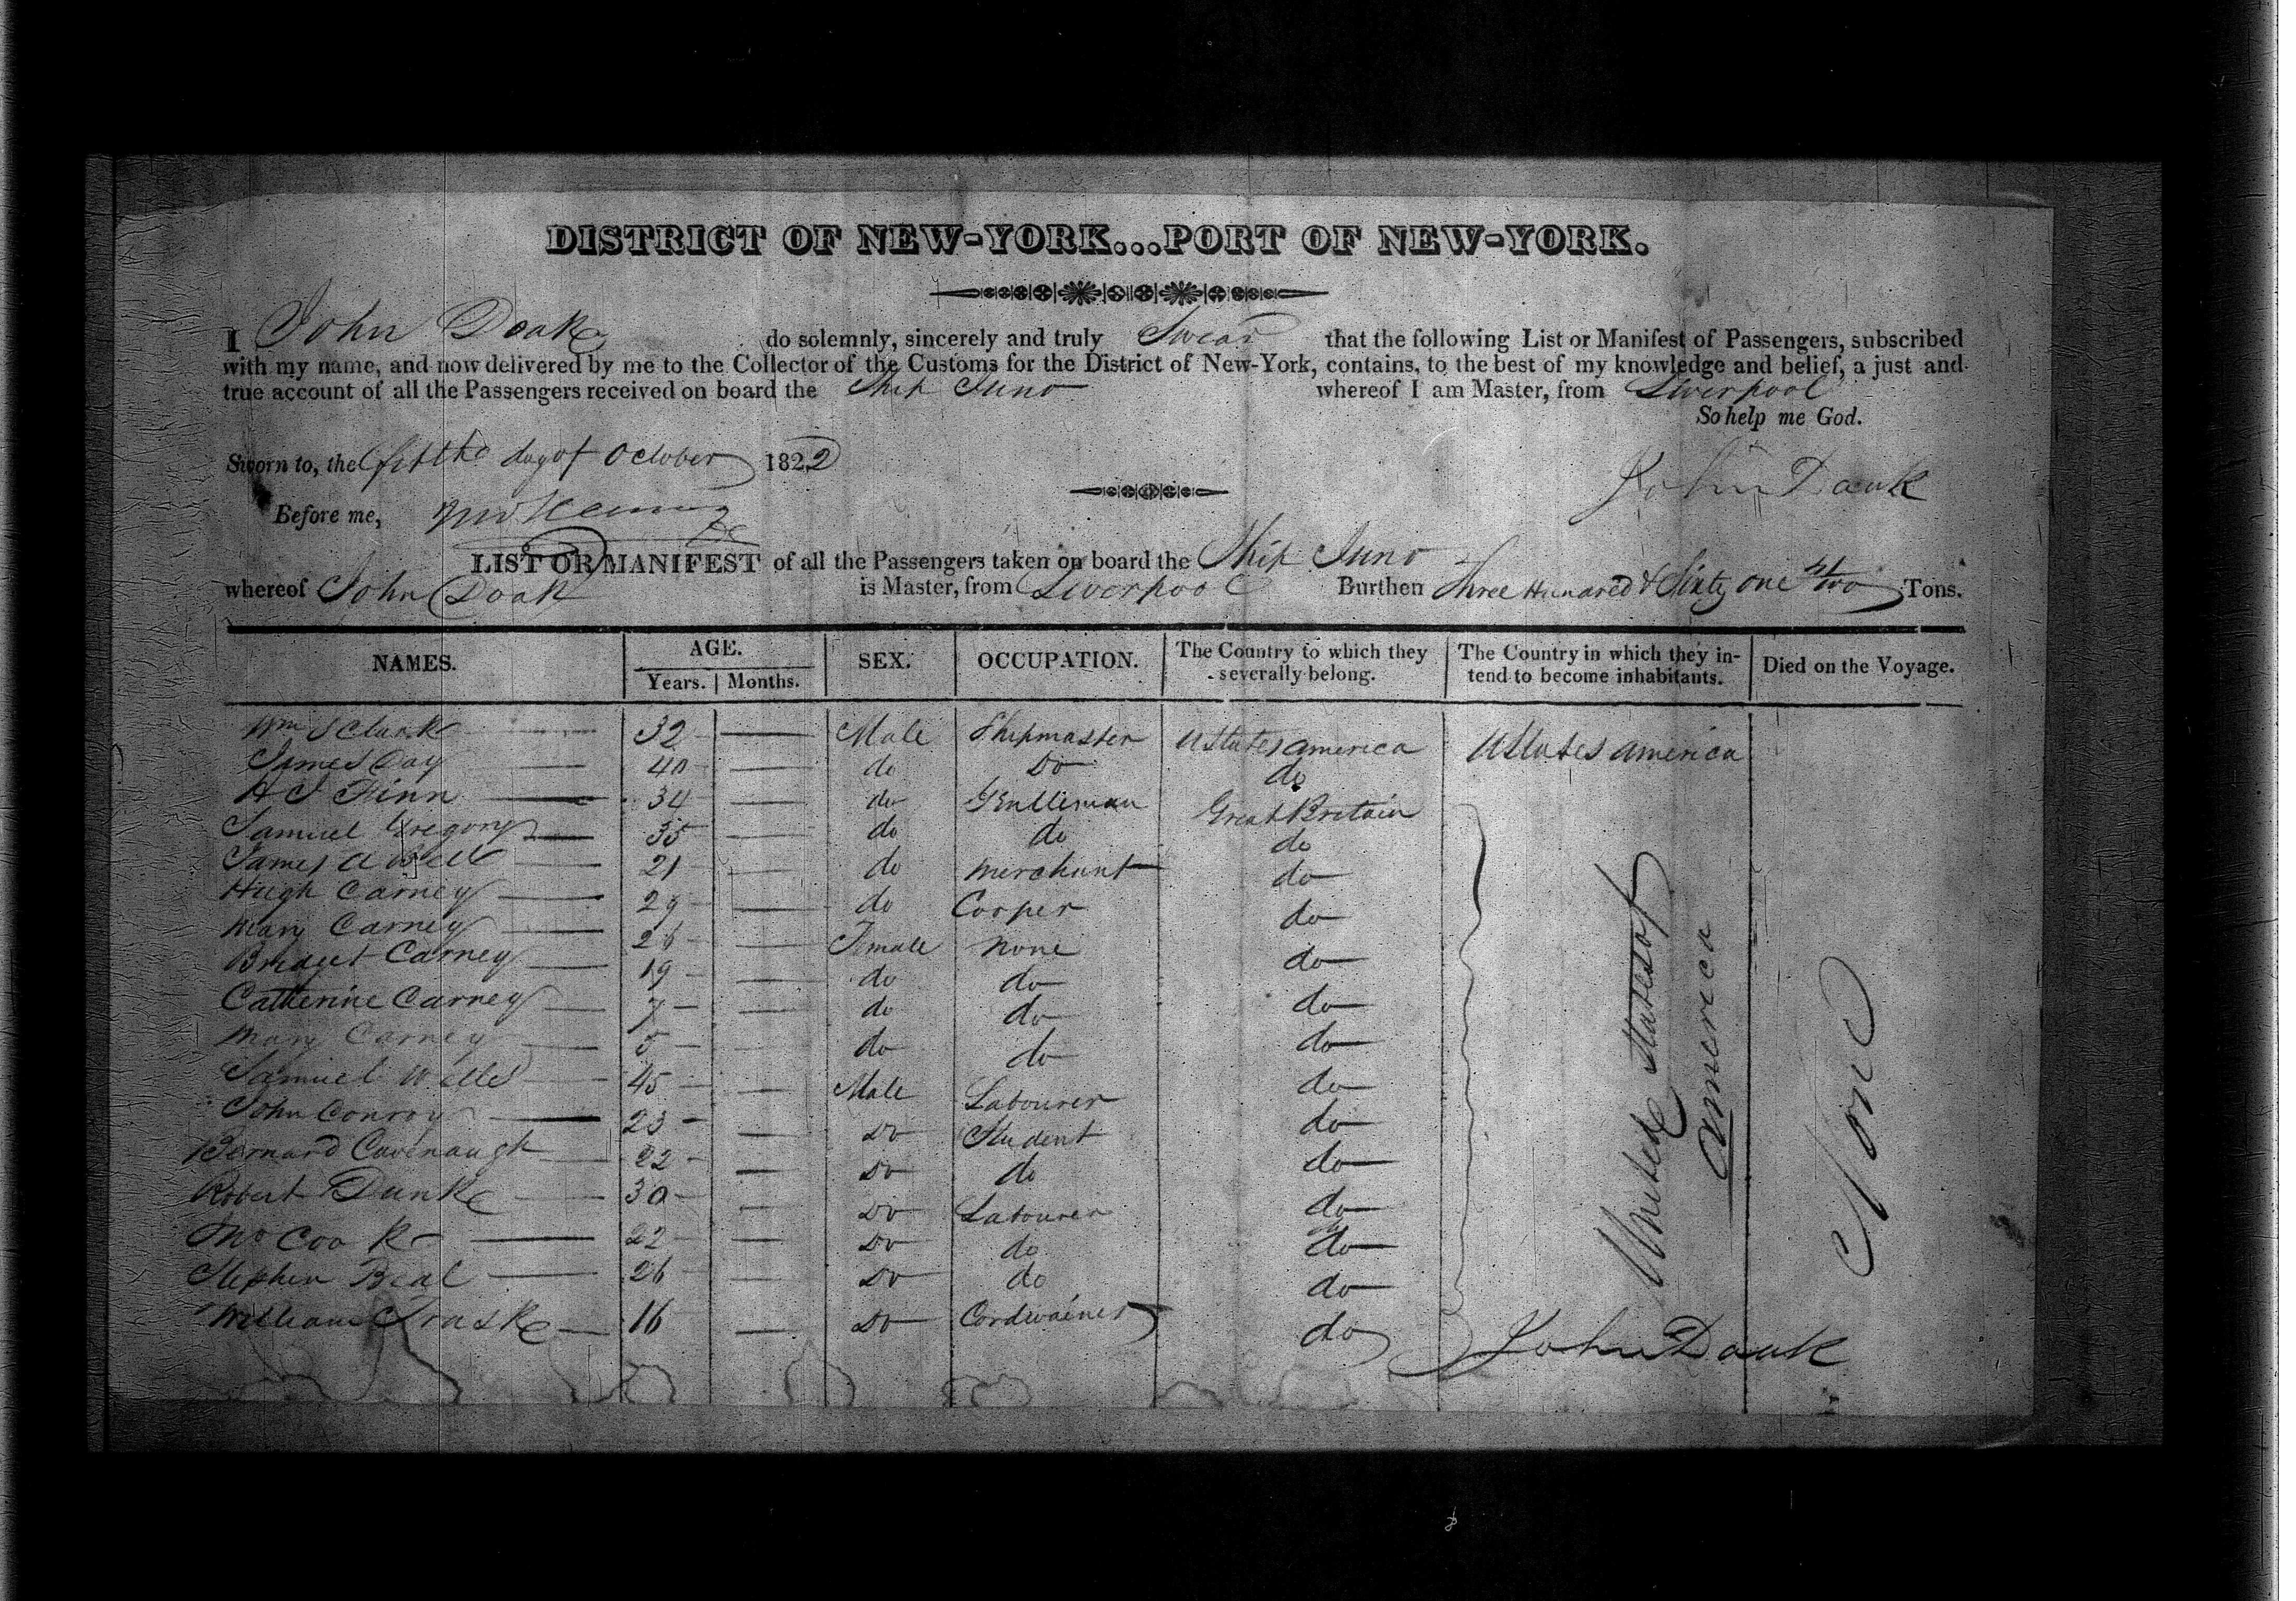 DISTRICT OF NEW-YORK...PORT OF NEW-YORK.
I John Doake do solemnly, sincerely and truly Swear that the following List or Manifest of Passengers, subscribed
with my name, and now delivered by me to the Collector of the Customs for the District of New-York, contains, to the best of my knowledge and belief, a just and
true account of all the Passengers received on board the Ship Juno whereof I am Master, from Liverpool
So help me God.
Sworn to, the day of October 1822
John Doak
Before me,
LIST OR MANIFEST of all the Passengers taken on board the Ship Juno
whereof John Doak is Master, from Liverpool Burthen Three Hundred & Sixty one Tons.
NAMES. AGE. Years. Months. SEX. OCCUPATION. The Country to which they severally belong. The Country in which they intend to become inhabitants. Died on the Voyage.
Wm S Clark 32 Male Shipmaster UStates america UStates america
James Day 40 do Do do
H J Finn 34 do Gentleman Great Britain
Samuel Gregory 35 do do do
James A Bell 21 do merchant do
Hugh Carney 29 do Cooper do
Mary Carney 26 Female none do
Bridget Carney 19 do do do
Catherine Carney 7 do do do
Mary Carney 5 do do do
Samuel Wells 45 Male Labourer do
John Conroy 23 Do Student do
Bernard Cavenaugh 22 Do do do
Robert Dunke 30 Do Labourer do
Cook 22 Do do do
Stephen Beal 26 Do do do
William Traske 16 Do Cordwainer do
United States of
america
None
John Doak
8